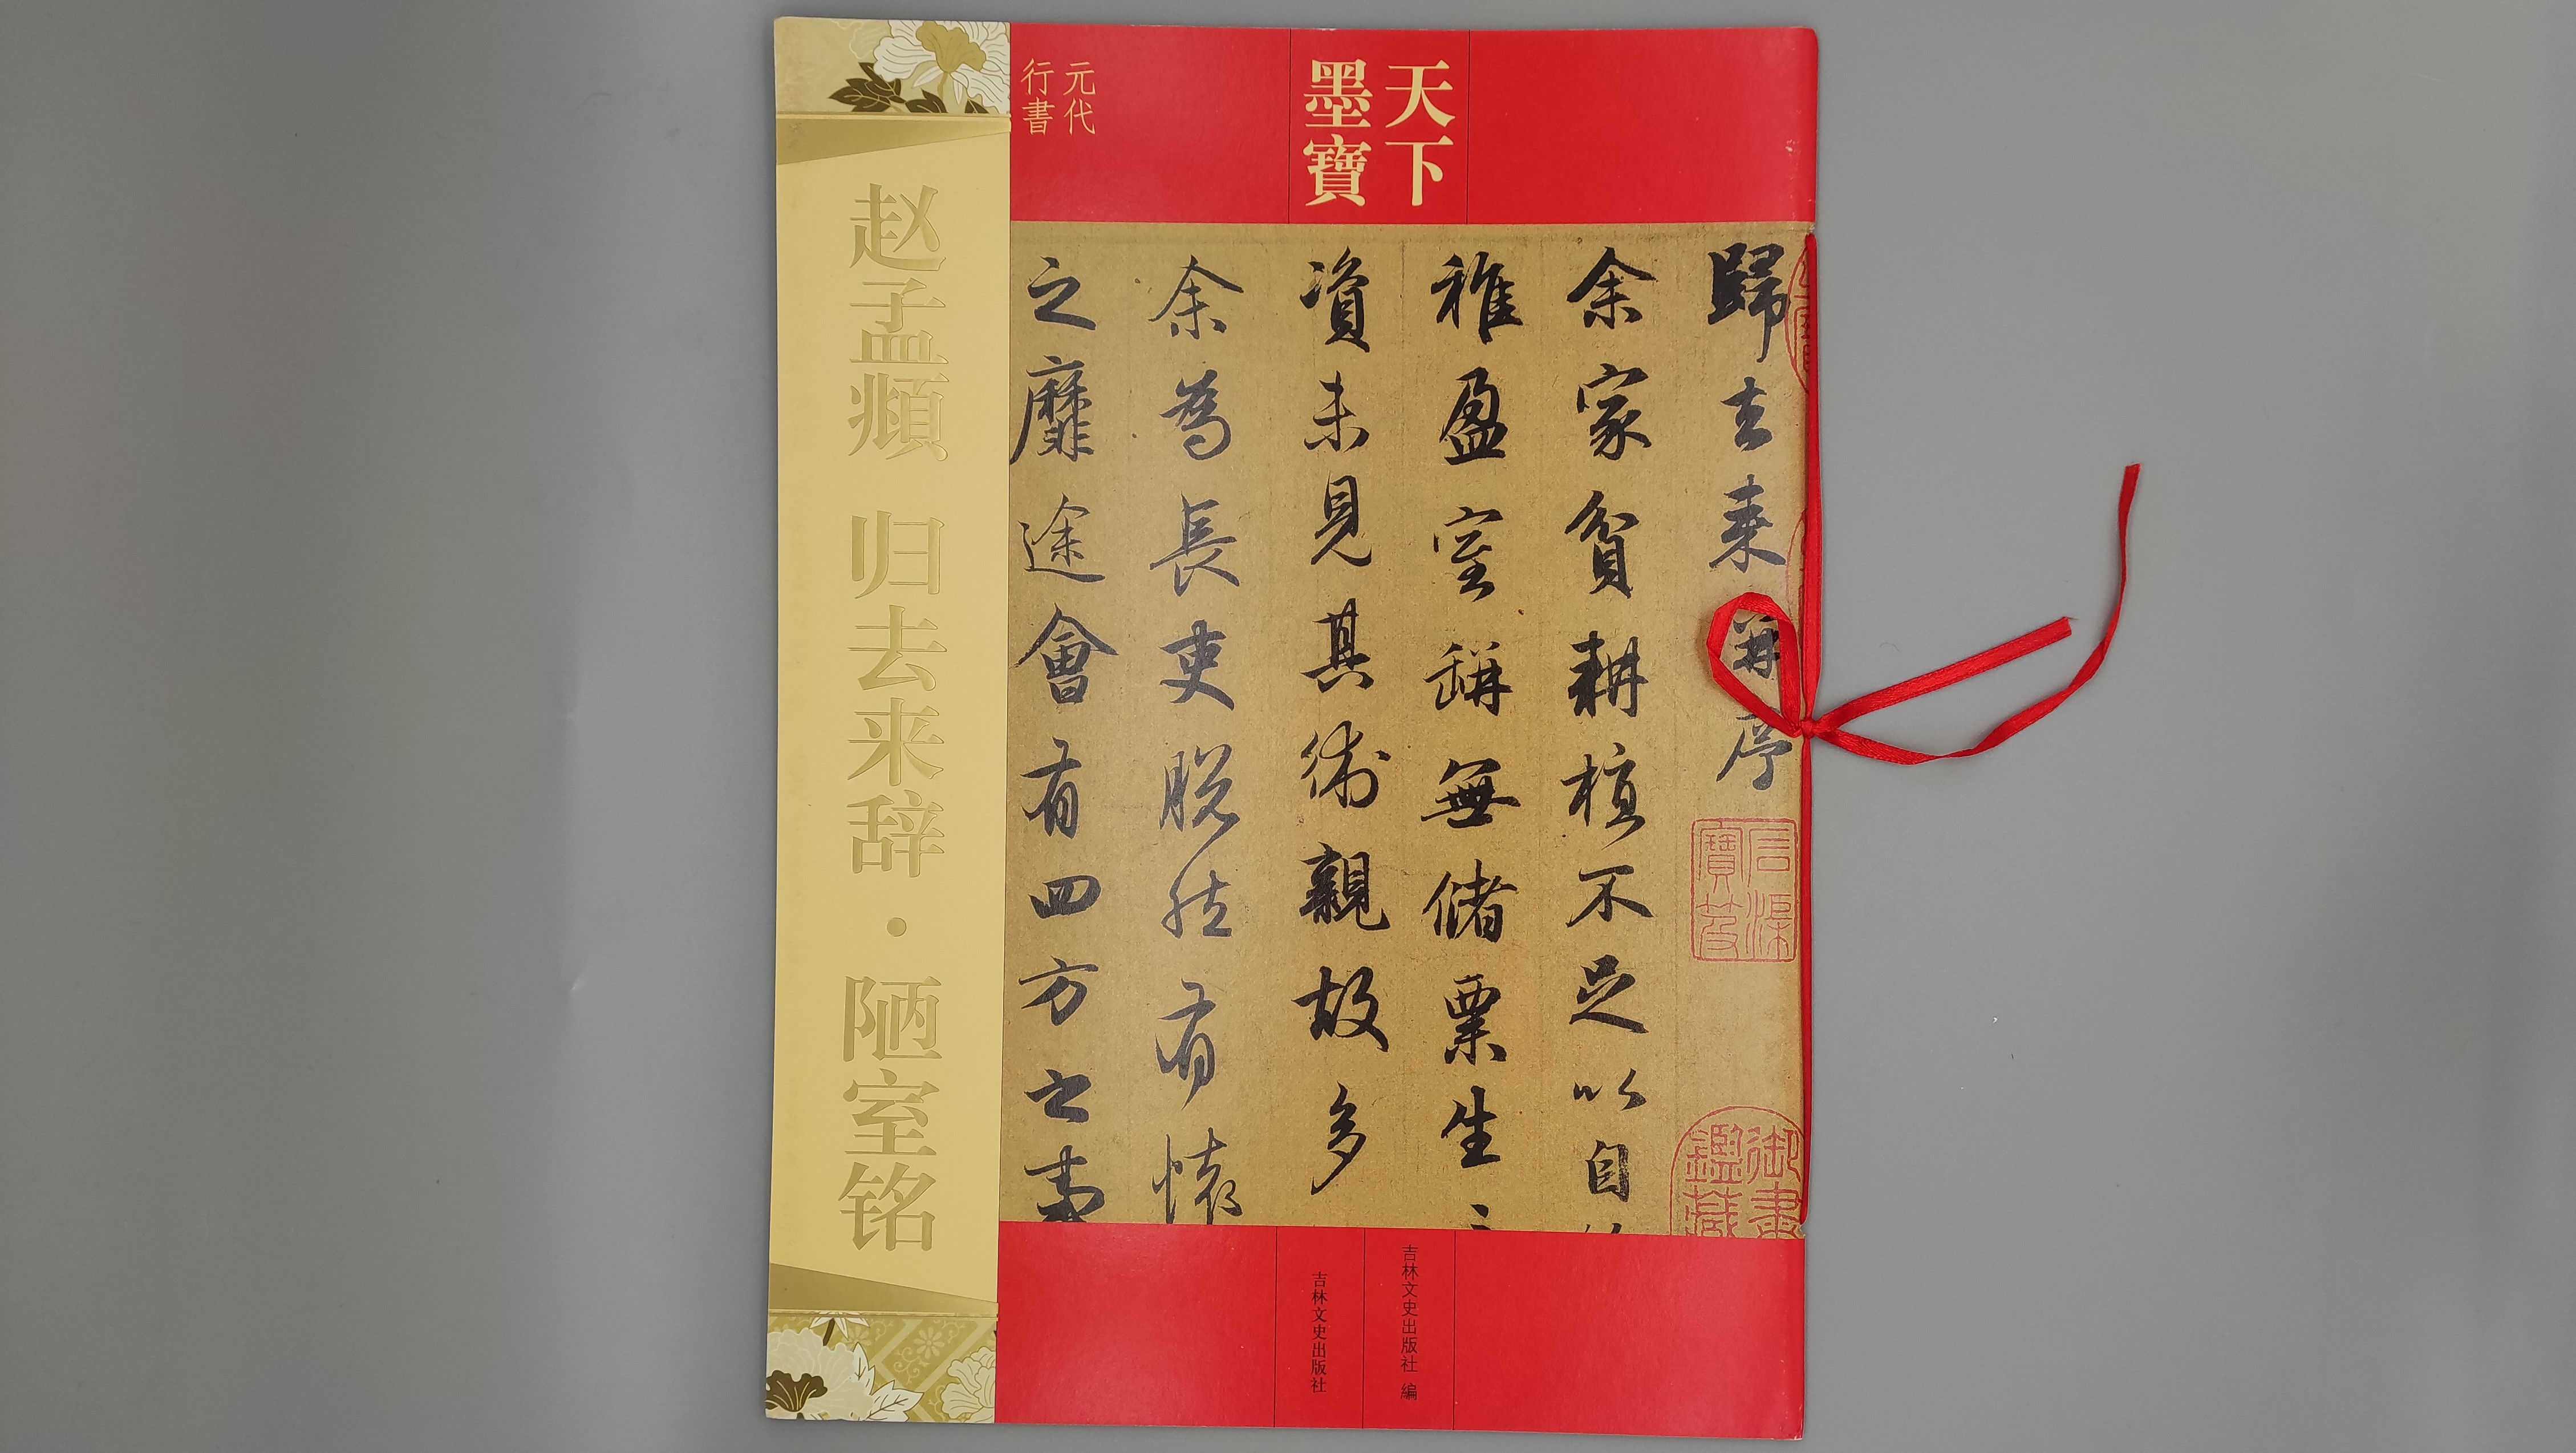 天下
墨寶
元代
行書
赵孟頫 归去来辞·陋室铭
歸去来并序
余家貧耕植不足以自
稚盈室缾無儲粟生
資未見其術親故多
余為長吏脱然有懷
之靡途會有四方之事
石渠
寶笈
御書
鑑藏
吉林文史出版社 編
吉林文史出版社